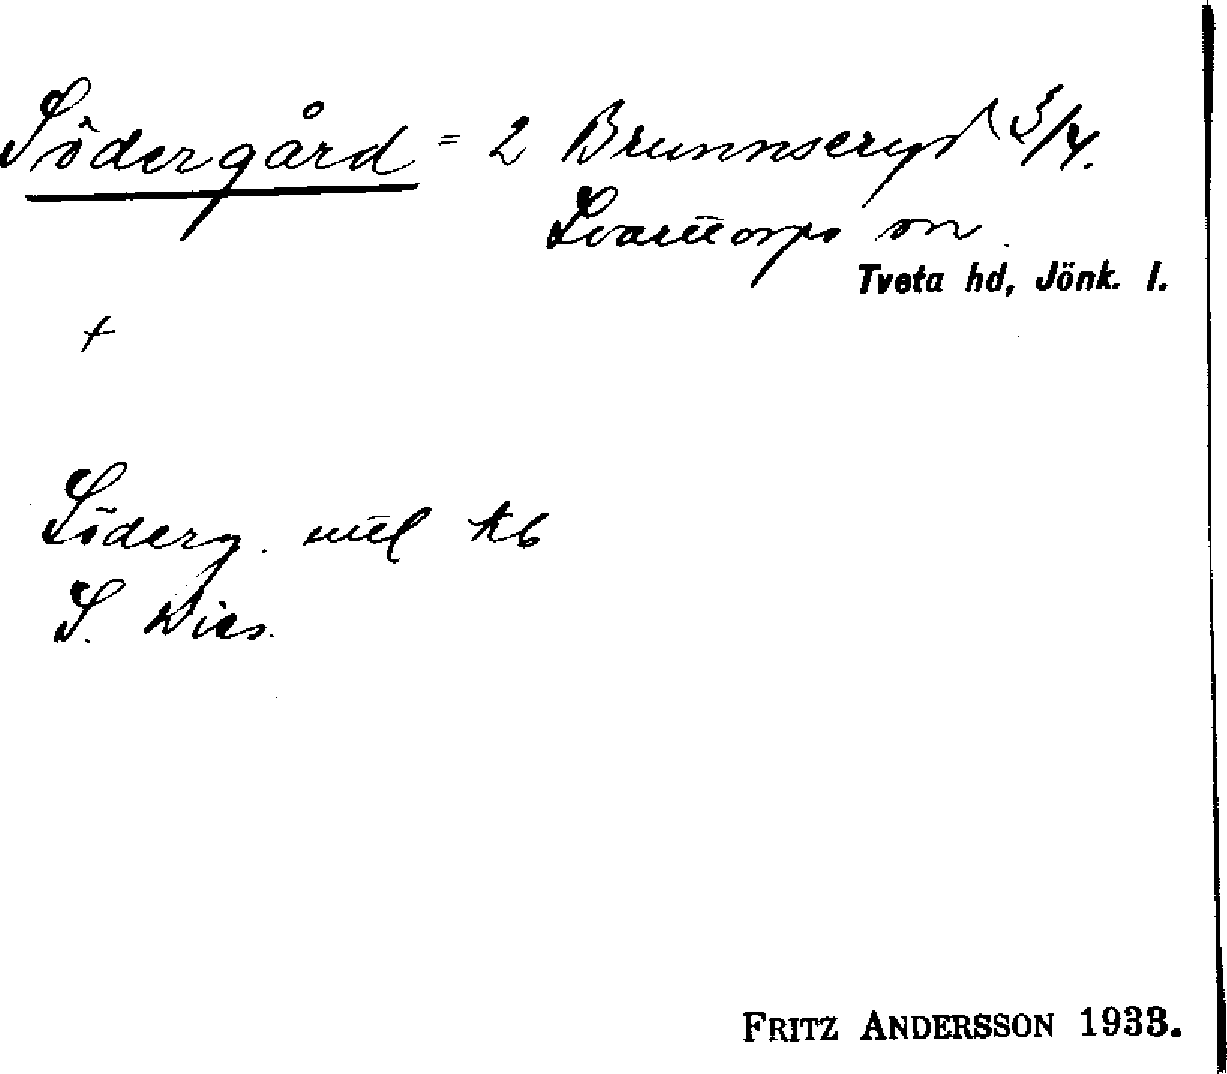 Södergård = 2 Brunnseryd 3/4.
Svarttorps sn.
Tveta hd, Jönk. l.
+
Söderg. mtl kb
S.
FRITZ ANDERSSON 1933.